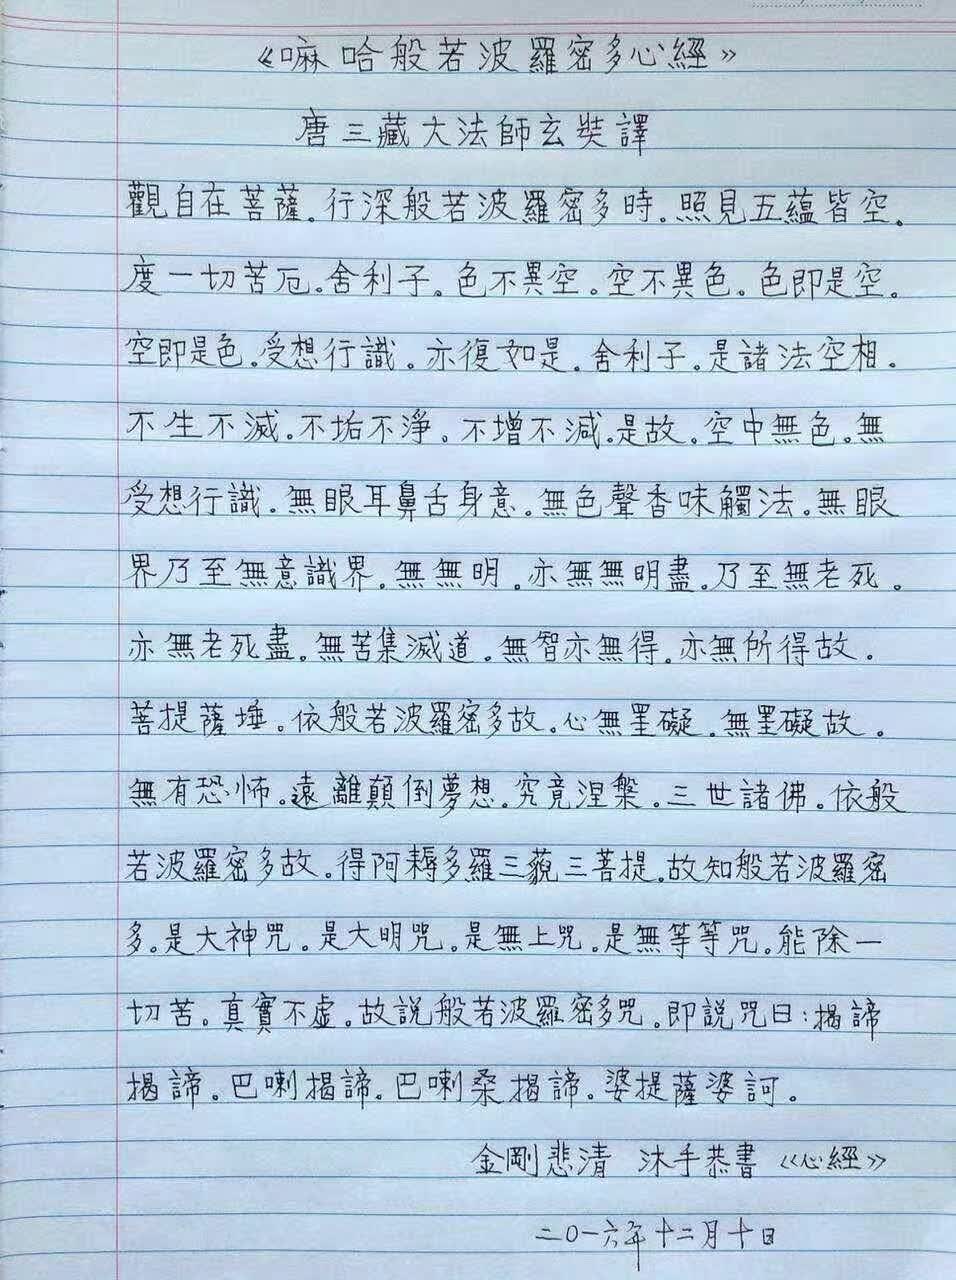 《嘛哈般若波羅密多心經》
唐三藏大法師玄奘譯
觀自在菩薩。行深般若波羅密多時。照見五蘊皆空。
度一切苦厄。舍利子。色不異空。空不異色。色即是空。
空即是色。受想行識。亦復如是。舍利子。是諸法空相。
不生不滅。不垢不淨。不增不減。是故。空中無色。無
受想行識。無眼耳鼻舌身意。無色聲香味觸法。無眼
界乃至無意識界。無無明。亦無無明盡。乃至無老死。
亦無老死盡。無苦集滅道。無智亦無得。亦無所得故。
菩提薩埵。依般若波羅密多故。心無罣礙。無罣礙故。
無有恐怖。遠離顛倒夢想。究竟涅槃。三世諸佛。依般
若波羅密多故。得阿耨多羅三藐三菩提。故知般若波羅密
多。是大神咒。是大明咒。是無上咒。是無等等咒。能除一
切苦。真實不虛。故説般若波羅密多咒。即説咒曰：揭諦
揭諦。巴喇揭諦。巴喇桑揭諦。婆提薩婆訶。
金剛悲清 沐手恭書《心經》
二〇一六年十二月十日